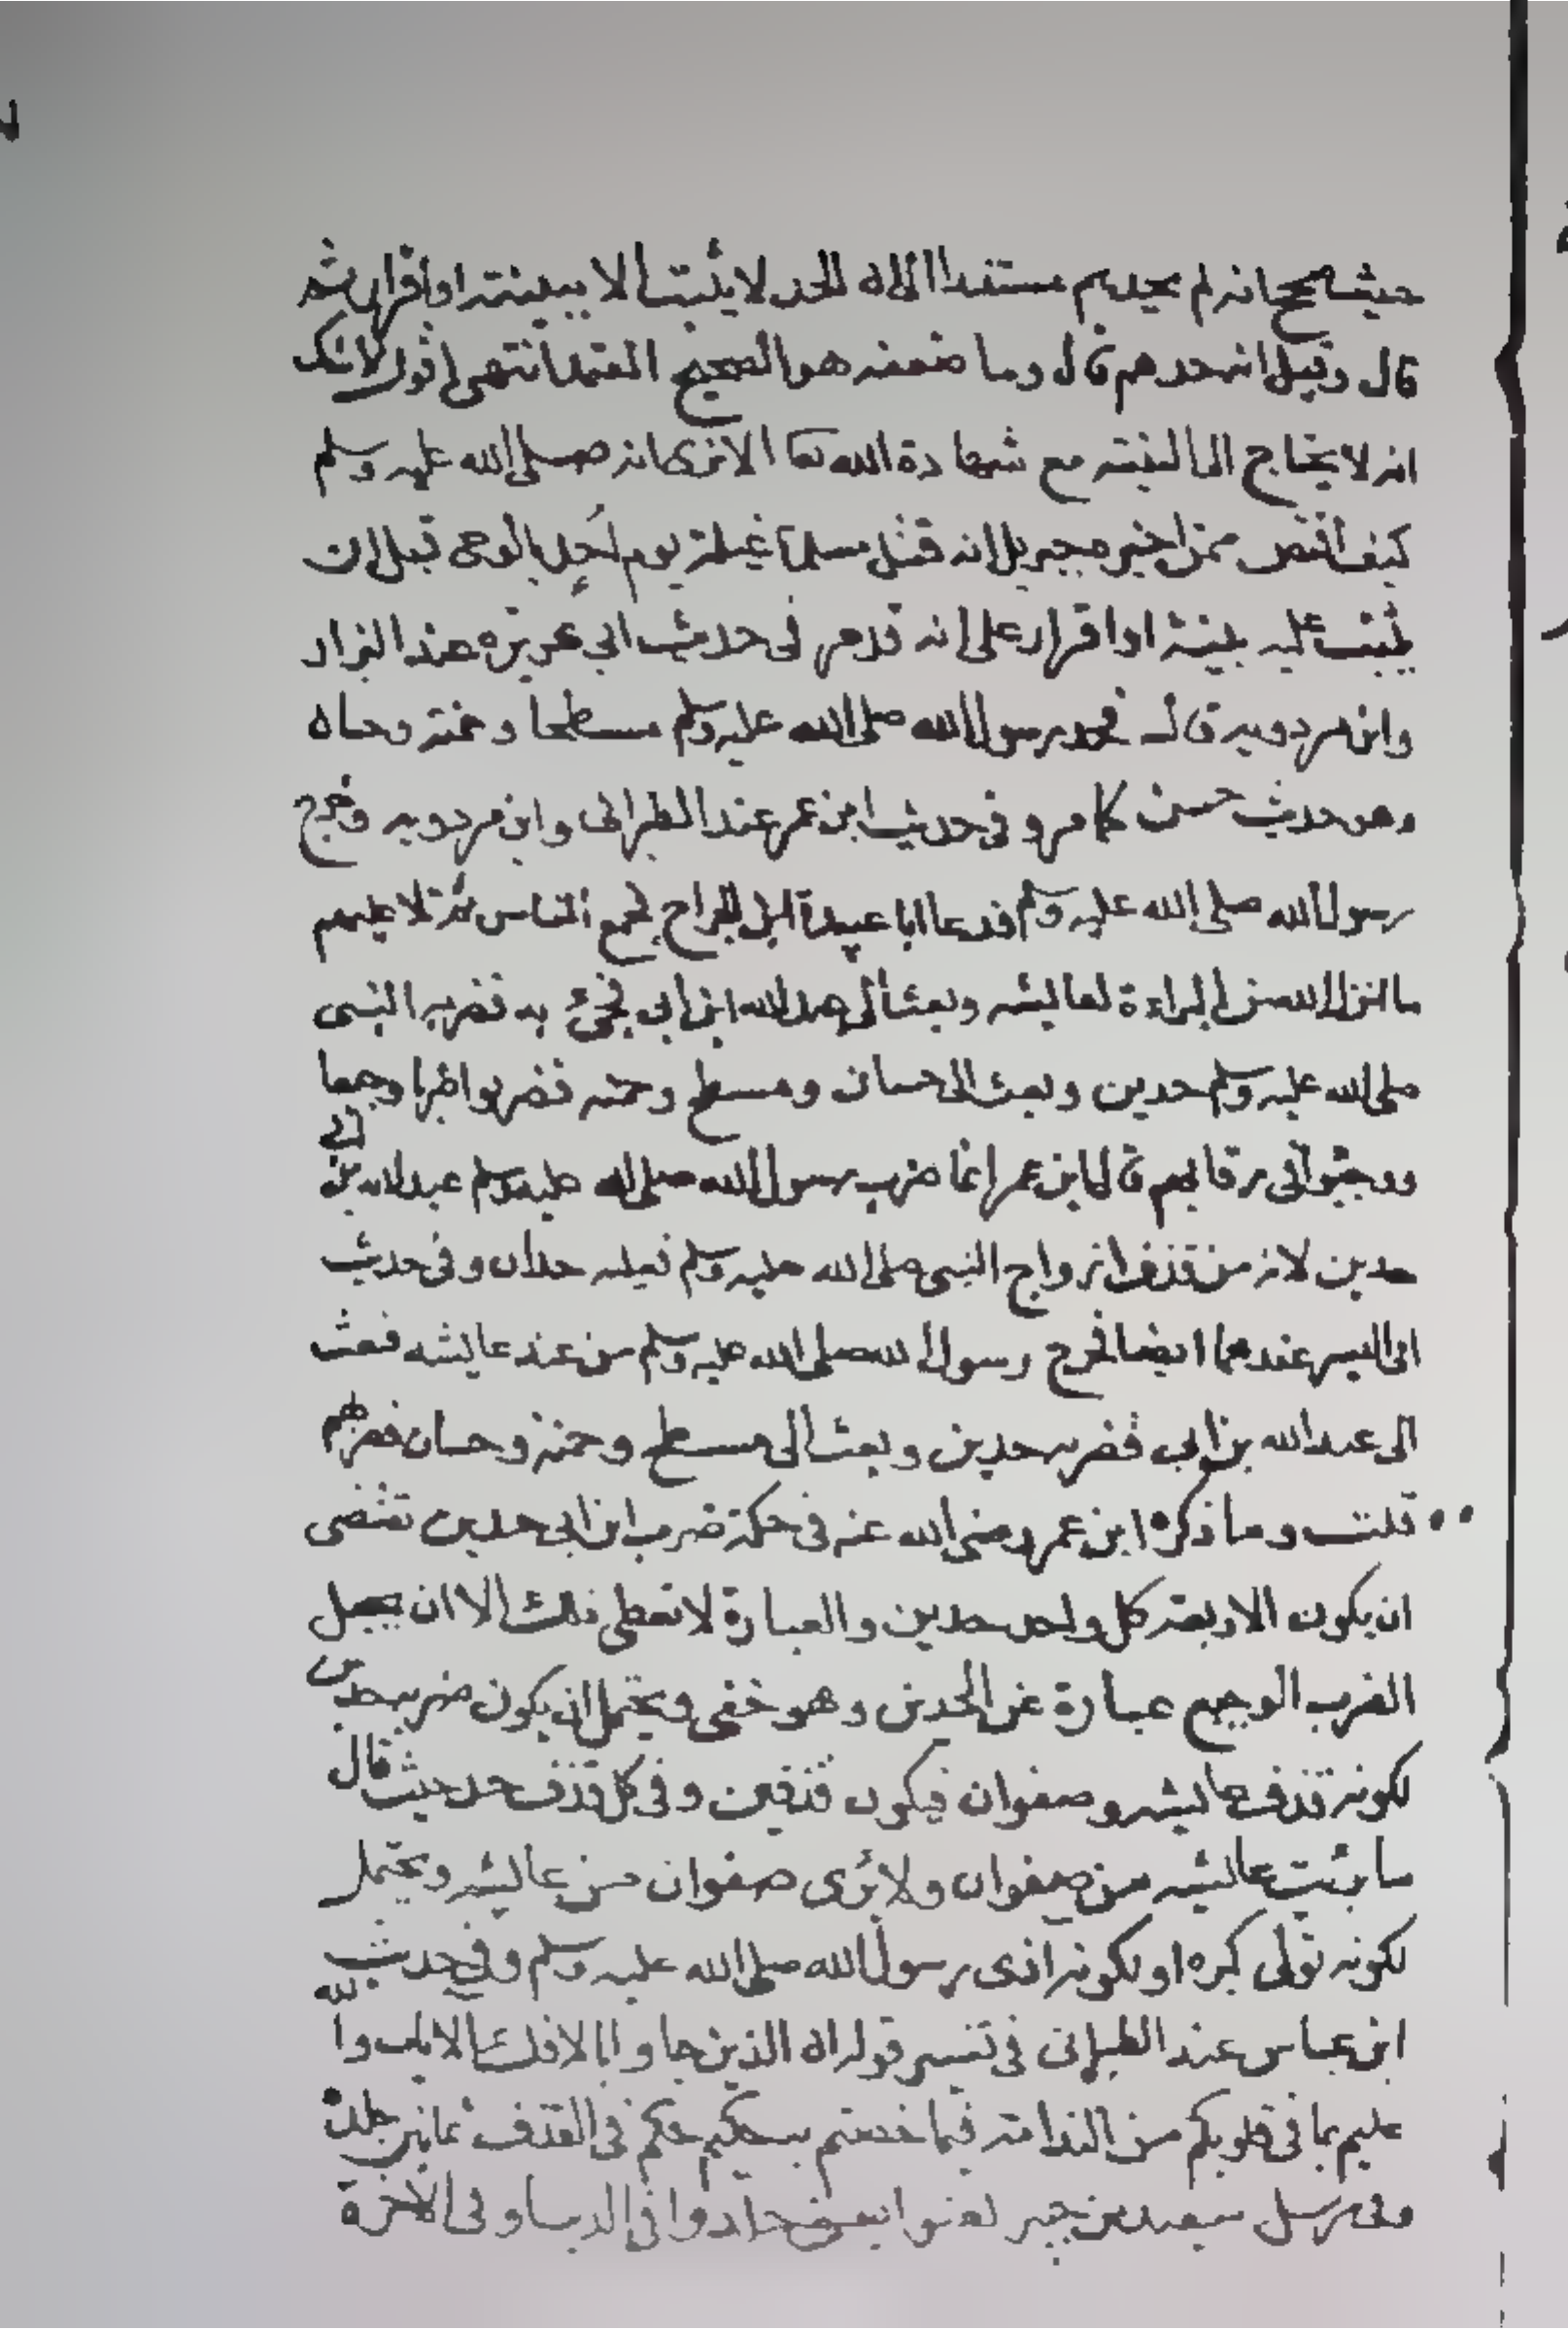 حيث صحح انه لم يحدهم مستندا الى ان الحد لا يثبت الا ببينة او اقرار ثم
قال وقيل انه حدهم قال وما ضعفه هو الصحيح المعتمد انتهى اقول لا شك
انه لا يحتاج الى البينة مع شهادة الله تعا الا ترى انه صلى الله عليه وسلم
كيف اقتص ممن اخبره جبريل انه قتل مسلما غيلة يوم أحدٍ بالوحى قبل ان
يثبت عليه بينة او اقرار على انه قد مر فى حديث ابى هريرة عند البزار
وابن مردويه قال فحد رسول الله صلى الله عليه وسلم مسطحا وحمنة وحسان
وهو حديث حسن كما مر وفى حديث ابن عمر عند الطبرانى وابن مردويه وخرج
رسول الله صلى الله عليه وسلم فدعا ابا عبيدة ابن الجراح فجمع الناس ثم تلا عليهم
ما انزل الله من البراءة لعايشه وبعث الى عبد الله ابن ابى فجئ به فضربه النبى
صلى الله عليه وسلم حدين وبعث الى حسان ومسطح وحمنه فضربوا ضربا وجيعا
ووجئوا فى رقابهم قال ابن عمر انما ضرب رسول الله صلى الله عليه وسلم عبد الله بن ابى
حدين لانه من قذف ازواج النبى صلى الله عليه وسلم فعليه حدان وفى حديث
ابى اليسر عندهما ايضا فخرج رسول الله صلى الله عليه وسلم من عند عايشه فبعث
الى عبد الله بن ابى فضربه حدين وبعث الى مسطح وحمنة وحسان فضربهم
قلت وما ذكره ابن عمر رضى الله عنه فى حكمة ضرب ابن ابى حدين تقتضى
ان يكون الاربعة كل واحد حدين والعبارة لا تعطى ذلك الا ان يجعل
الضرب الوجيع عبارة عن الحدين وهو خفى ويحتمل ان يكون ضربه حدين
لكونه قذف عايشه وصفوان فيكون قذفين وفى كل قذف حد حيث قال
ما برئت عايشه من صفوان ولا برى صفوان من عايشه ويحتمل
لكونه تولى كبره او لكونه اذى رسول الله صلى الله عليه وسلم وفى حديث
ابن عباس عند الطبرانى فى تفسير قوله ان الذين جاوا بالافك الايات والله
عليم بما فى قلوبكم من الندامة فيما خضتم به حكيم حكم فى القذف ثمانين جلدة
وفى مرسل سعيد بن جبير لعنوا يعنى جلدوا فى الدنيا وفى الآخرة